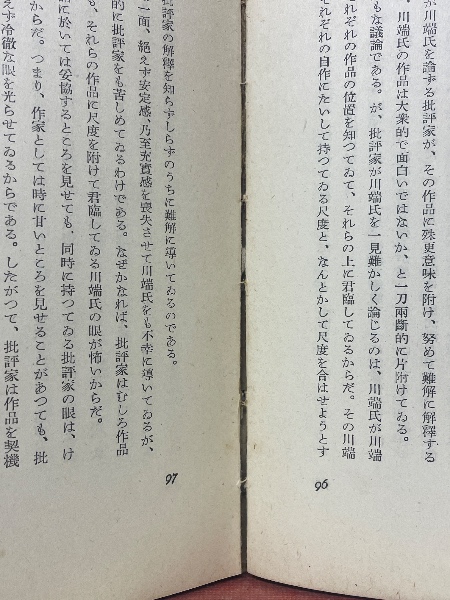 川端氏を論ずる批評家が、その作品に殊更意味を附け、努めて難解に解釋する
、川端氏の作品は大衆的で面白いではないか、と一刀兩斷的に片附けてゐる。
もな議論である。が、批評家が川端氏を一見難かしく論じるのは、川端氏が川端
れぞれの作品の位置を知つてゐて、それらの上に君臨してゐるからだ。その川端
それぞれの自作にたいして持つてゐる尺度と、なんとかして尺度を合はせようとす
96
批評家の解釋を知らずしらずのうちに難解に導いてゐるのである。
一面、絶えず安定感、乃至充實感を喪失させて川端氏をも不幸に導いてゐるが、
的に批評家をも苦しめてゐるわけである。なぜかなれば、批評家はむしろ作品
も、それらの作品に尺度を附けて君臨してゐる川端氏の眼が怖いからだ。
に於いては妥協するところを見せても、同時に持つてゐる批評家の眼は、け
からだ。つまり、作家としては時に甘いところを見せることがあつても、批
えず冷徹な眼を光らせてゐるからである。したがつて、批評家は作品を契機
97